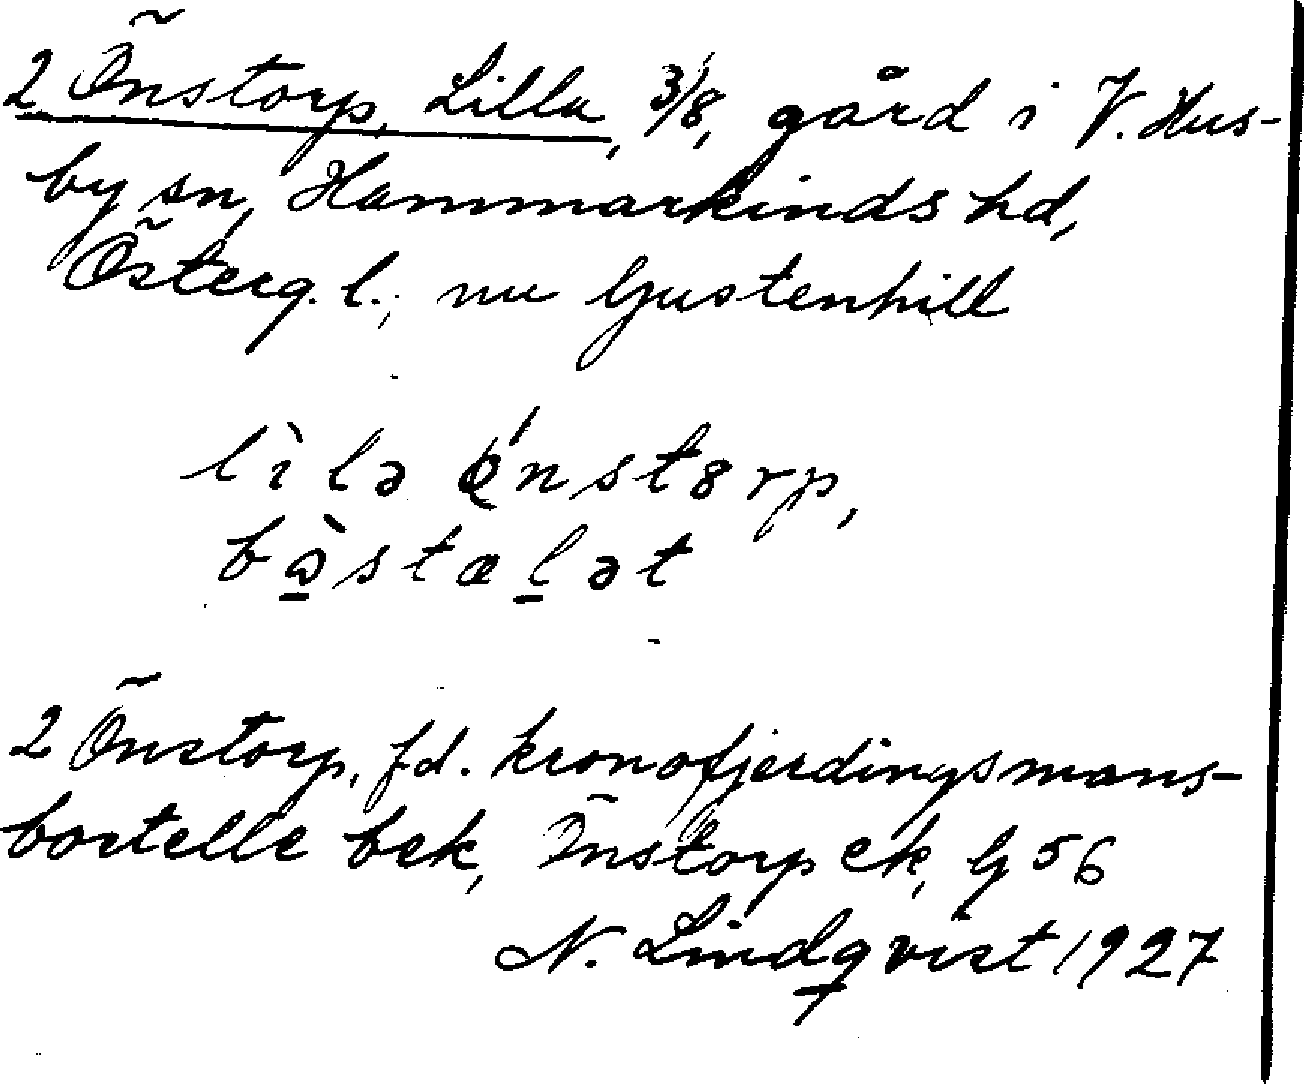 2 Önstorp, Lilla, 3/8, gård i V. Hus-
by sn, Hammarkinds hd,
Österg. l., nu Gustenhill
lìlə ǿnstørp,
bòstælət
2 Önstorp, fd. kronofjerdingsmans-
bostelle bek, Önstorp ek, G 56
N. Lindqvist 1927